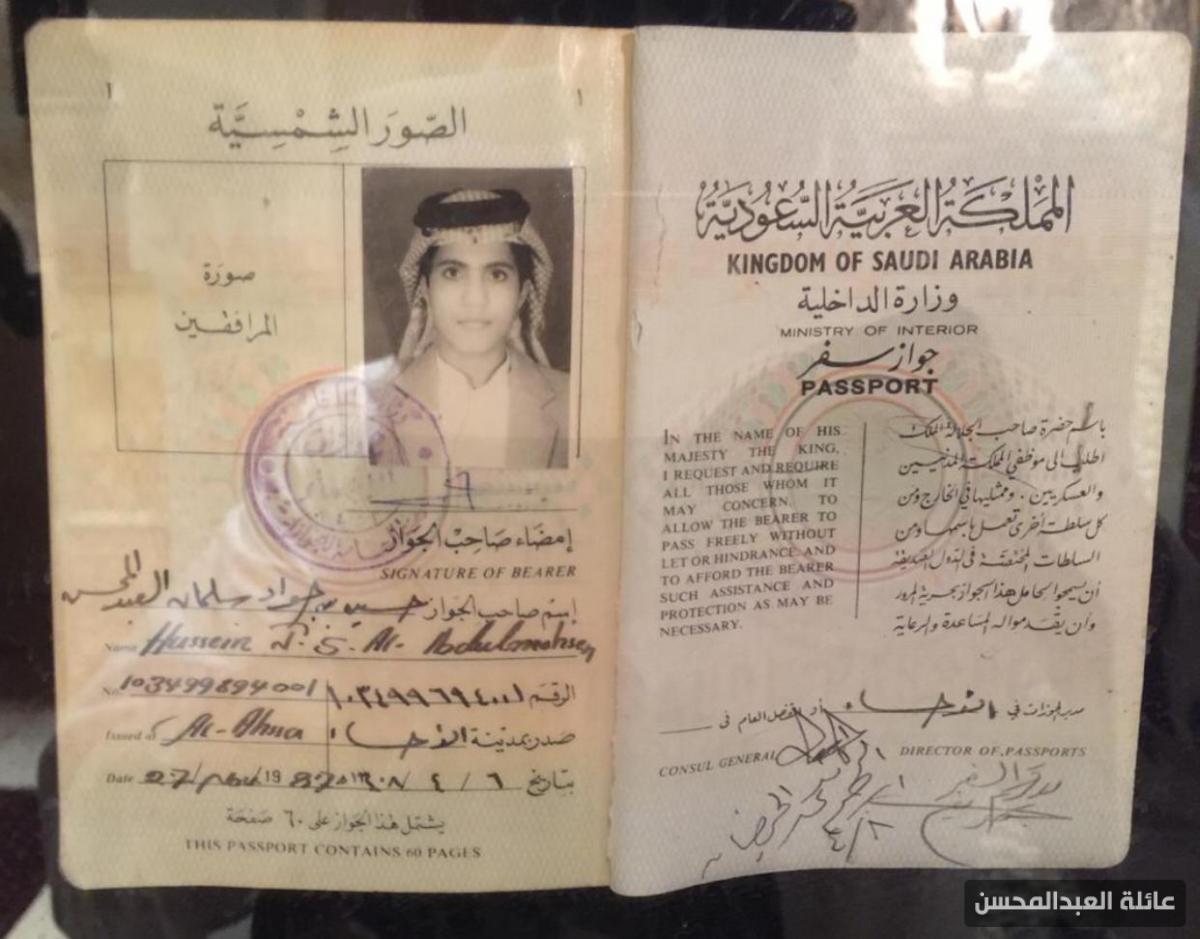 ١
١
الصّور الشِمْسِيَّة
صورَة
المرافقين
إمضاء صَاحِبْ الجَوَاز
SIGNATURE OF BEARER
إسم صاحب الجواز حسين بن جواد سلمان العبد المحسن
Name Hussein J. S. Al-Abdulmohsen
الرقم
Issued at Al-Ahsa صدر بمدينة الاحساء
Date 27/Nov/1987 بتاريخ ٦ / ٤ / ١٤٠٨
يشتمل هذا الجواز على ٦٠ صَفحَة
THIS PASSPORT CONTAINS 60 PAGES
المملكة العربية السعودية
KINGDOM OF SAUDI ARABIA
وزارة الداخلية
MINISTRY OF INTERIOR
جواز سفر
PASSPORT
IN THE NAME OF HIS
MAJESTY THE KING,
I REQUEST AND REQUIRE
ALL THOSE WHOM IT
MAY CONCERN, TO
ALLOW THE BEARER TO
PASS FREELY WITHOUT
LET OR HINDRANCE AND
TO AFFORD THE BEARER
SUCH ASSISTANCE AND
PROTECTION AS MAY BE
NECESSARY.
باسم حضرة صاحب الجلالة الملك
اطلب الى موظفي المملكة المدنيين
والعسكريين . وممثليها في الخارج ومن
كل سلطة أخرى تعمل باسمها ومن
السلطات المختصة فى الدول الصديقة
أن يسمحوا لحامل هذا الجواز بحرية المرور
وان يقدموا له المساعدة والرعاية
مدير الجوازات في الاحساء أو القنصل العام فى
CONSUL GENERAL DIRECTOR OF PASSPORTS
عائلة العبدالمحسن